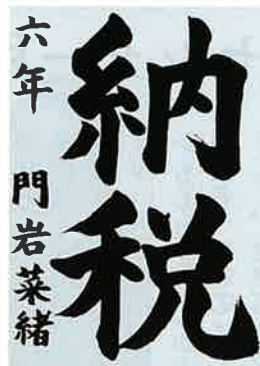 納税
六年 門岩菜緒